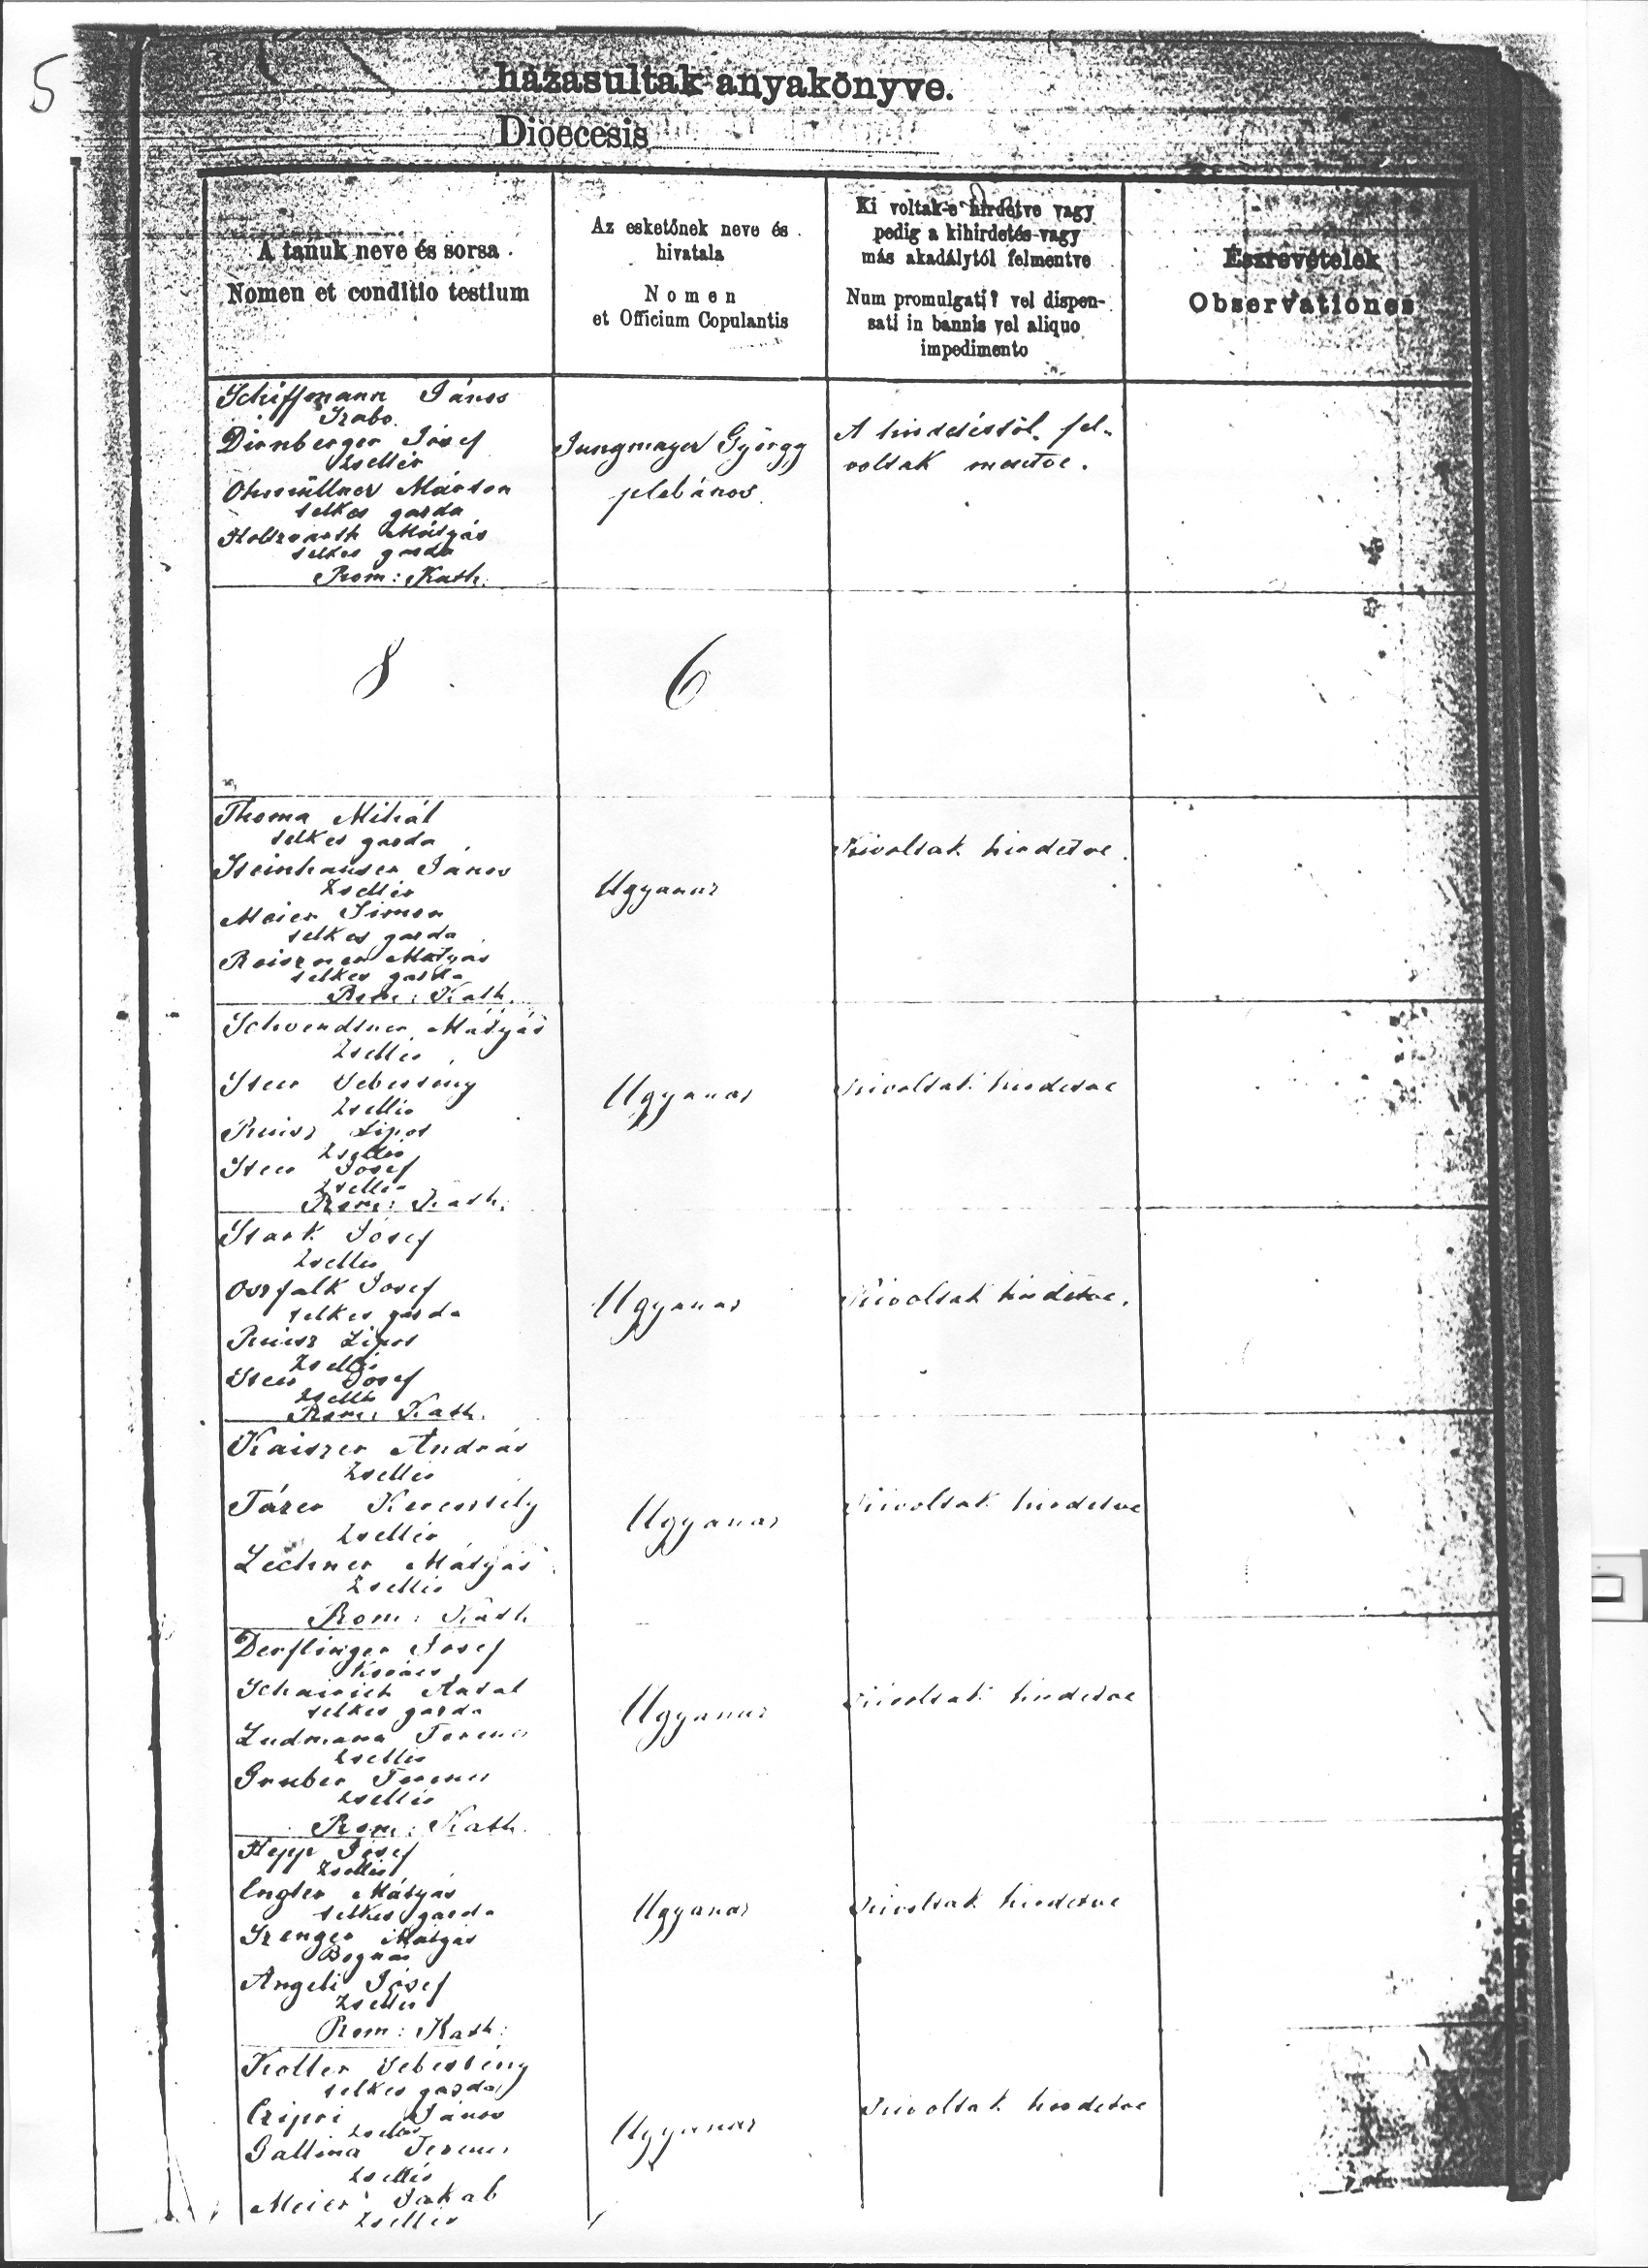 5
házasultak anyakönyve.
Dioecesis
A tanuk neve és sorsa
Nomen et conditio testium
Az esketőnek neve és
hivatala
Nomen
et Officium Copulantis
Ki voltak-e hirdetve vagy
pedig a kihirdetés vagy
más akadálytól felmentve
Num promulgati? vel dispen-
sati in bannis vel aliquo
impedimento
Észrevételek
Observationes
Schiffmann János
Szabo
Dirnberger Jósef
Zsellér
Ohmüllner Márton
telkes gazda
Mátyás
telkes gazda
Rom: Kath.
Jungmayer György
plebános
A hirdetéstől fel-
voltak mentve.
8
6
Thoma Mihál
telkes gazda
Steinhauser János
Zsellér
Meier Simon
telkes gazda
Mátyás
telkes gazda
Rom: Kath.
Ugyanaz
Kivoltak hirdetve.
Mátyás
Zsellér
Sebestény
Zsellér
Lipot
Zsellér
Josef
Zsellér
Rom: Kath.
Ugyanaz
Kivoltak hirdetve
Stark Jósef
Zsellér
Josef
telkes gazda
Lipot
Zsellér
Josef
Zsellér
Rom: Kath.
Ugyanaz
Kivoltak hirdetve.
Kaiszer András
Zsellér
Keresztély
Zsellér
Lechner Mátyás
Zsellér
Rom: Kath
Ugyanaz
Kivoltak hirdetve
Derflinger Josef
Kovács
Antal
telkes gazda
Ludmann Ferenc
Zsellér
Gruber Ferenc
Zsellér
Rom: Kath.
Ugyanaz
Kivoltak hirdetve
Hepp Jósef
Zsellér
Engler Mátyás
telkes gazda
Mátyás
Bognár
Angeli Jósef
Zsellér
Rom: Kath:
Ugyanaz
Kivoltak hirdetve
Koller Sebestény
telkes gazda
Czipri János
Zsellér
Gallina Ferenc
Zsellér
Meier Jakab
Zsellér
Ugyanaz
Kivoltak hirdetve